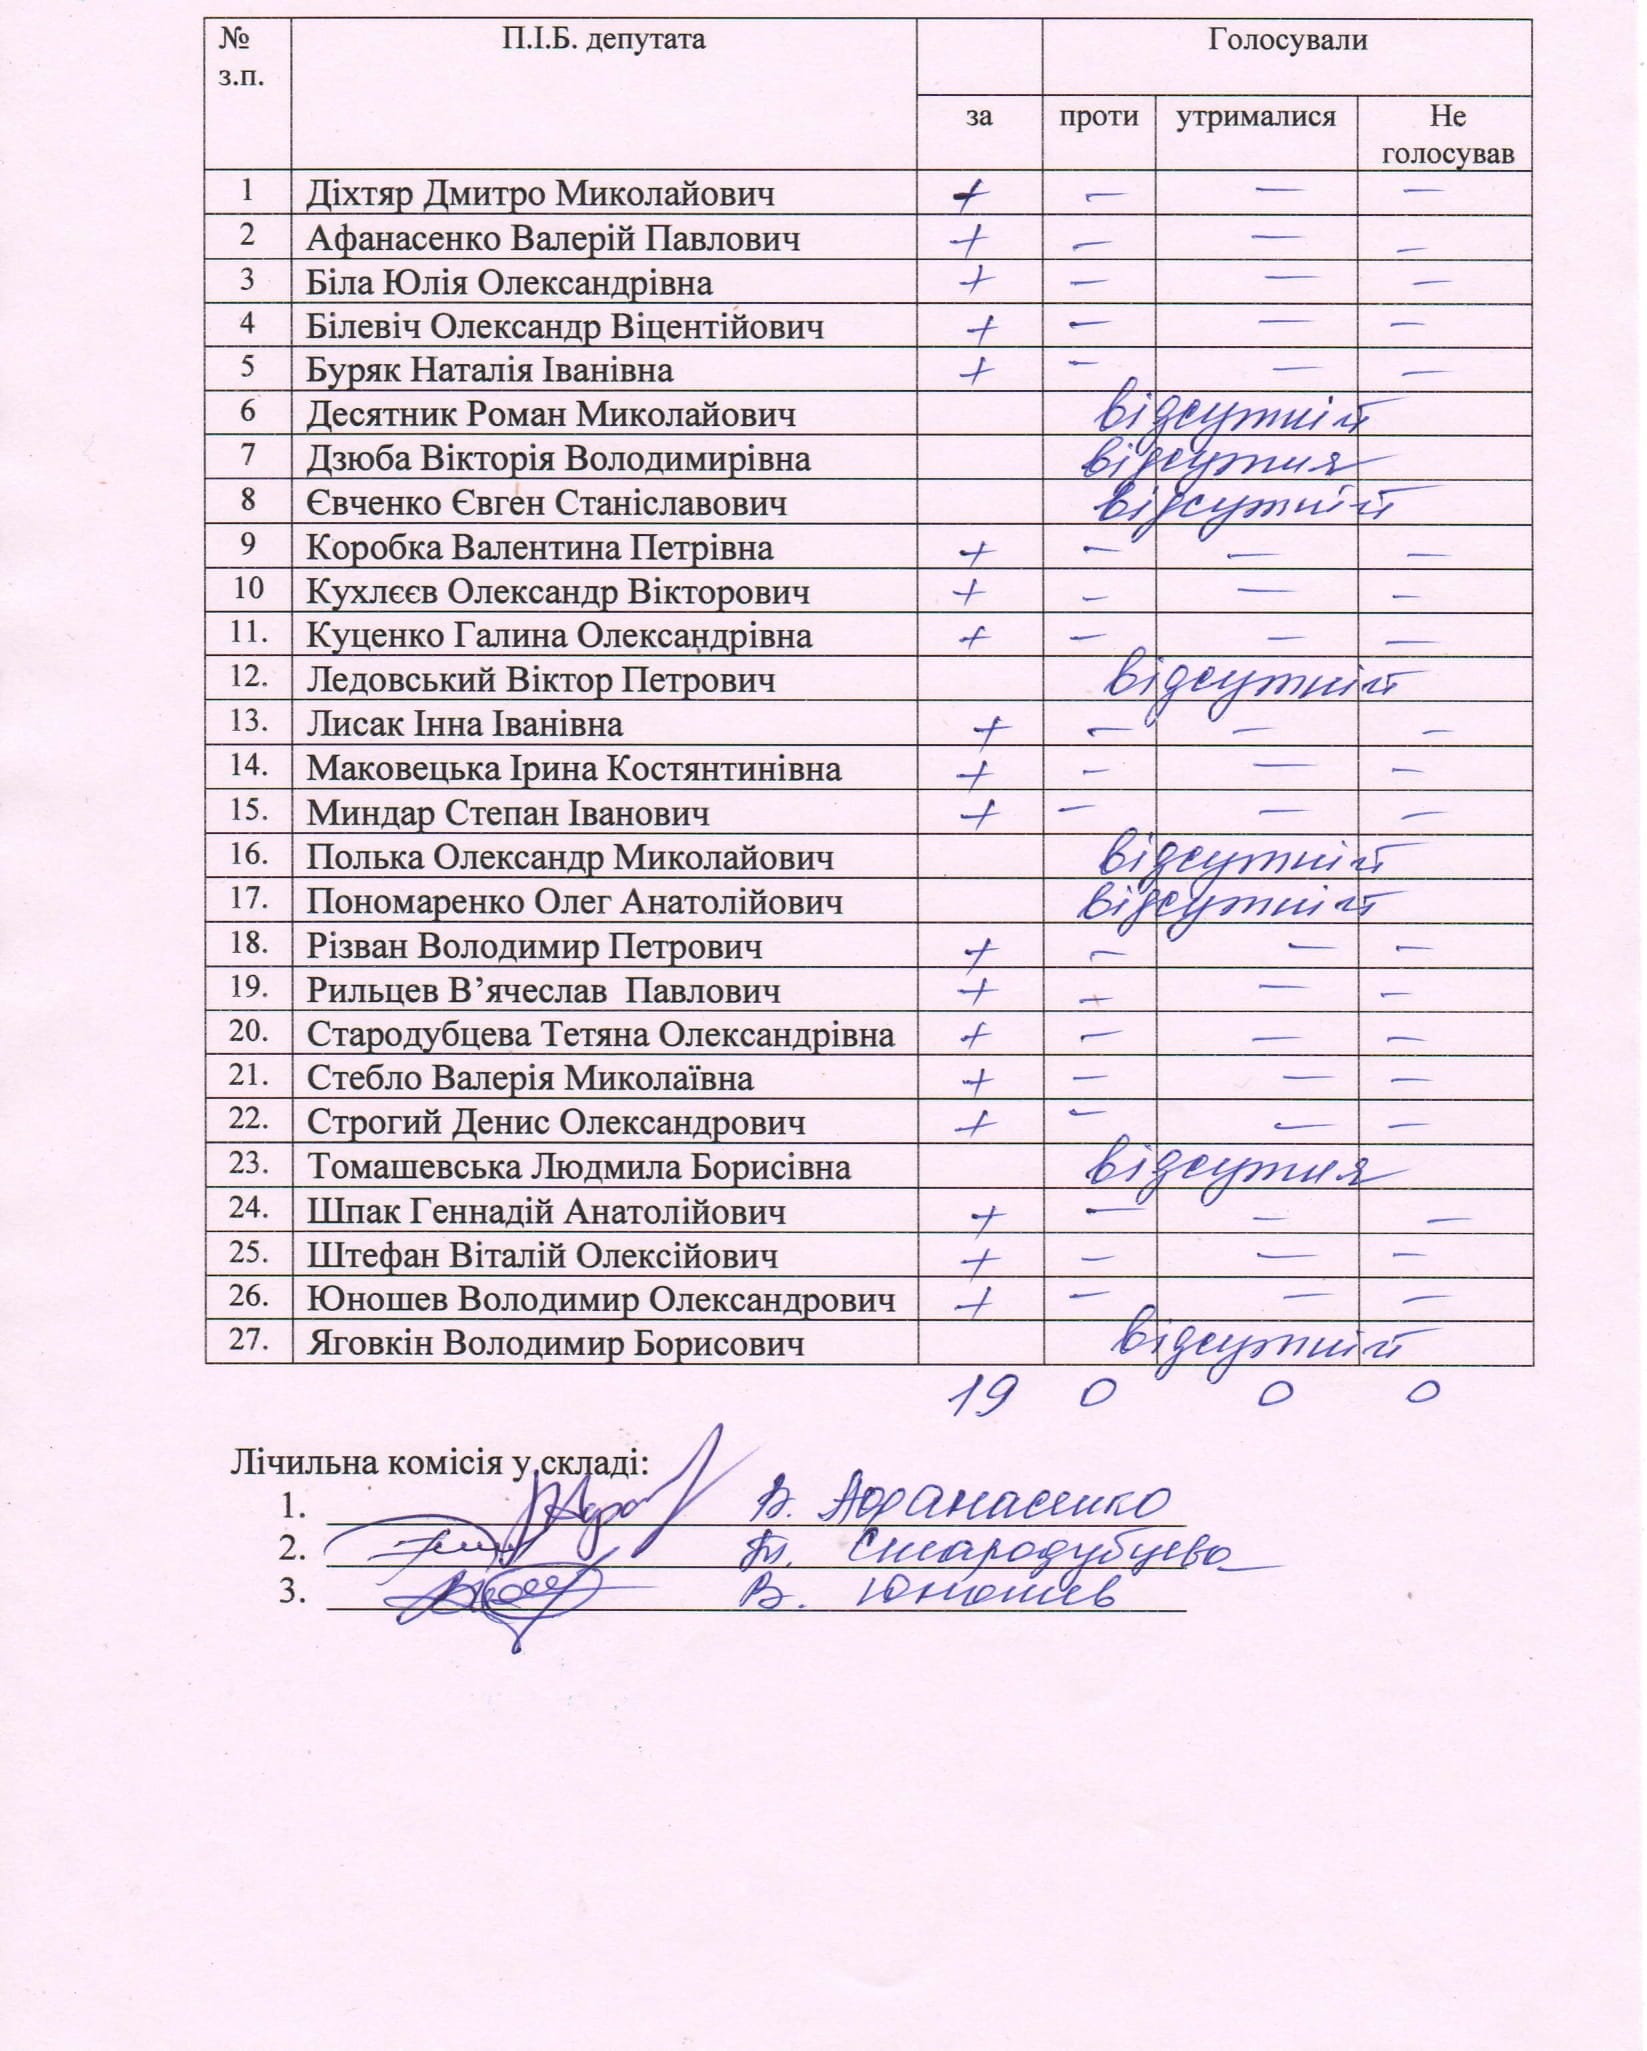 № П.І.Б. депутата Голосували
з.п.
за проти утрималися Не
голосував
1 Діхтяр Дмитро Миколайович + – – –
2 Афанасенко Валерій Павлович + – – –
3 Біла Юлія Олександрівна + – – –
4 Білевіч Олександр Віцентійович + – – –
5 Буряк Наталія Іванівна + – – –
6 Десятник Роман Миколайович відсутній
7 Дзюба Вікторія Володимирівна відсутня
8 Євченко Євген Станіславович відсутній
9 Коробка Валентина Петрівна + – – –
10 Кухлєєв Олександр Вікторович + – – –
11. Куценко Галина Олександрівна + – – –
12. Ледовський Віктор Петрович відсутній
13. Лисак Інна Іванівна + – – –
14. Маковецька Ірина Костянтинівна + – – –
15. Миндар Степан Іванович + – – –
16. Полька Олександр Миколайович відсутній
17. Пономаренко Олег Анатолійович відсутній
18. Різван Володимир Петрович + – – –
19. Рильцев В’ячеслав Павлович + – – –
20. Стародубцева Тетяна Олександрівна + – – –
21. Стебло Валерія Миколаївна + – – –
22. Строгий Денис Олександрович + – – –
23. Томашевська Людмила Борисівна відсутня
24. Шпак Геннадій Анатолійович + – – –
25. Штефан Віталій Олексійович + – – –
26. Юношев Володимир Олександрович + – – –
27. Яговкін Володимир Борисович відсутній
19 0 0 0
Лічильна комісія у складі:
1. В. Афанасенко
2. Т. Стародубцева
3. В. Юношев